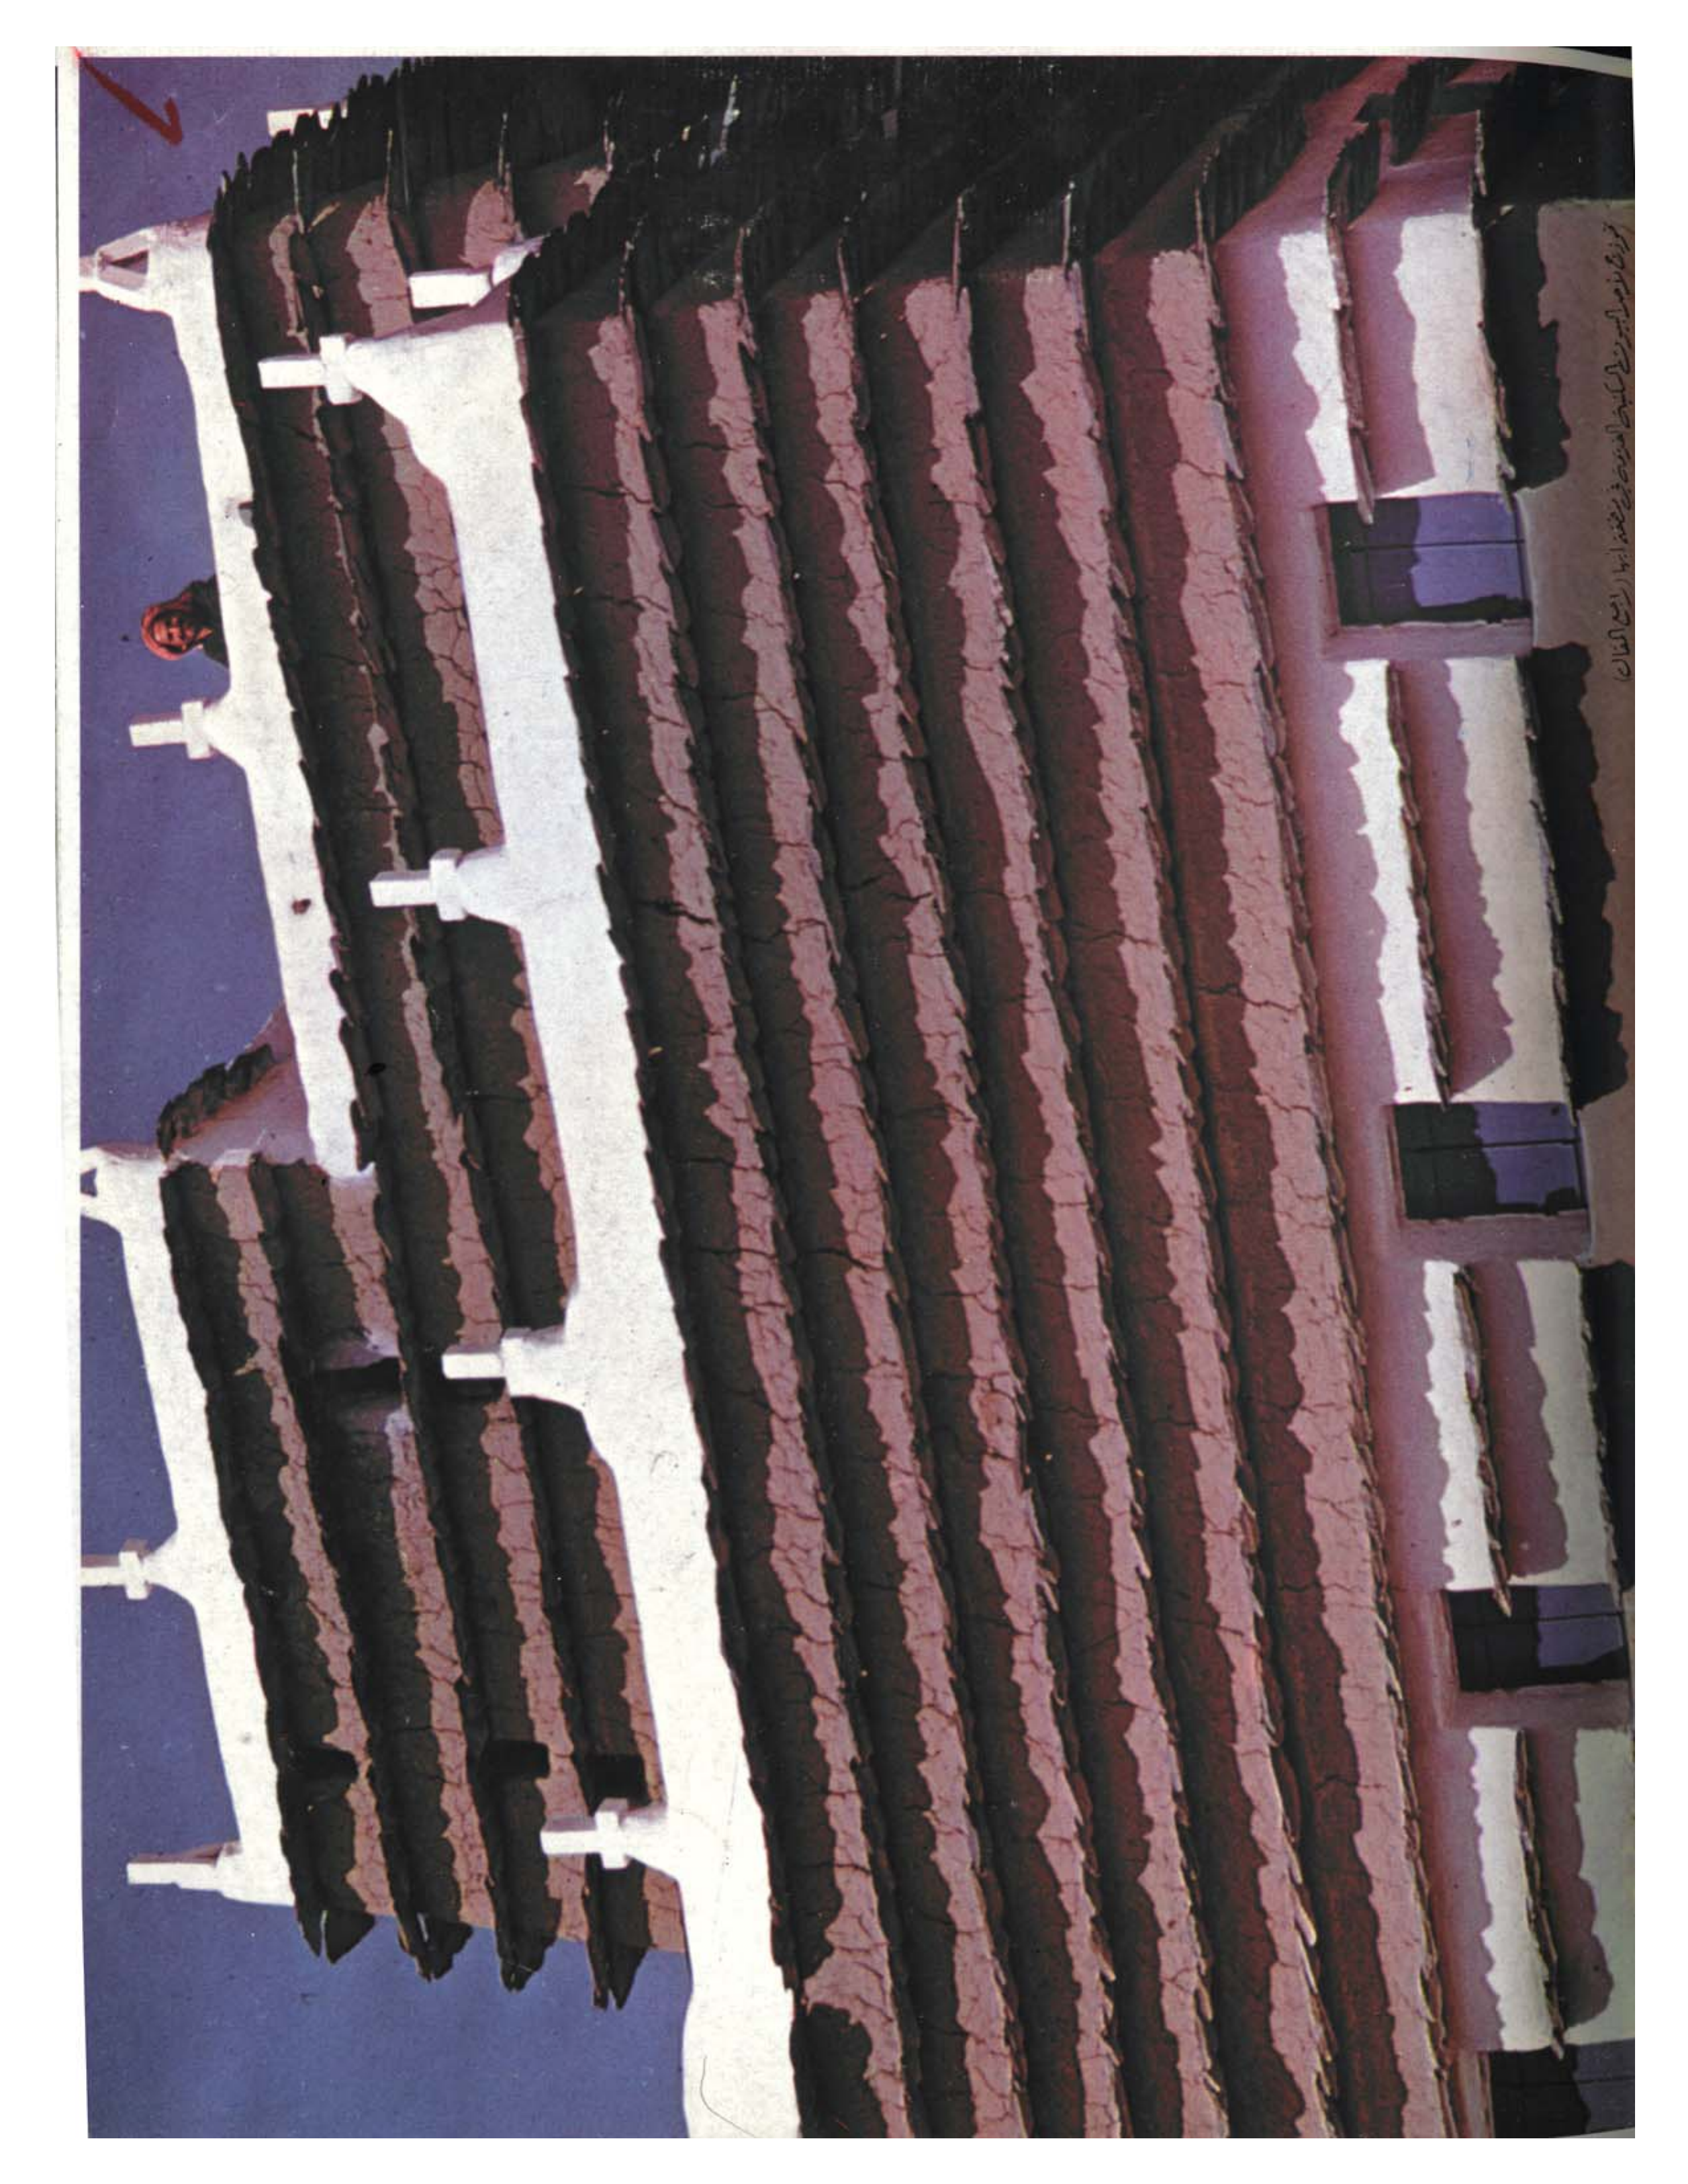 نموذج لأحد البيوت السكنية القديمة في منطقة أبها (راجع المقال)